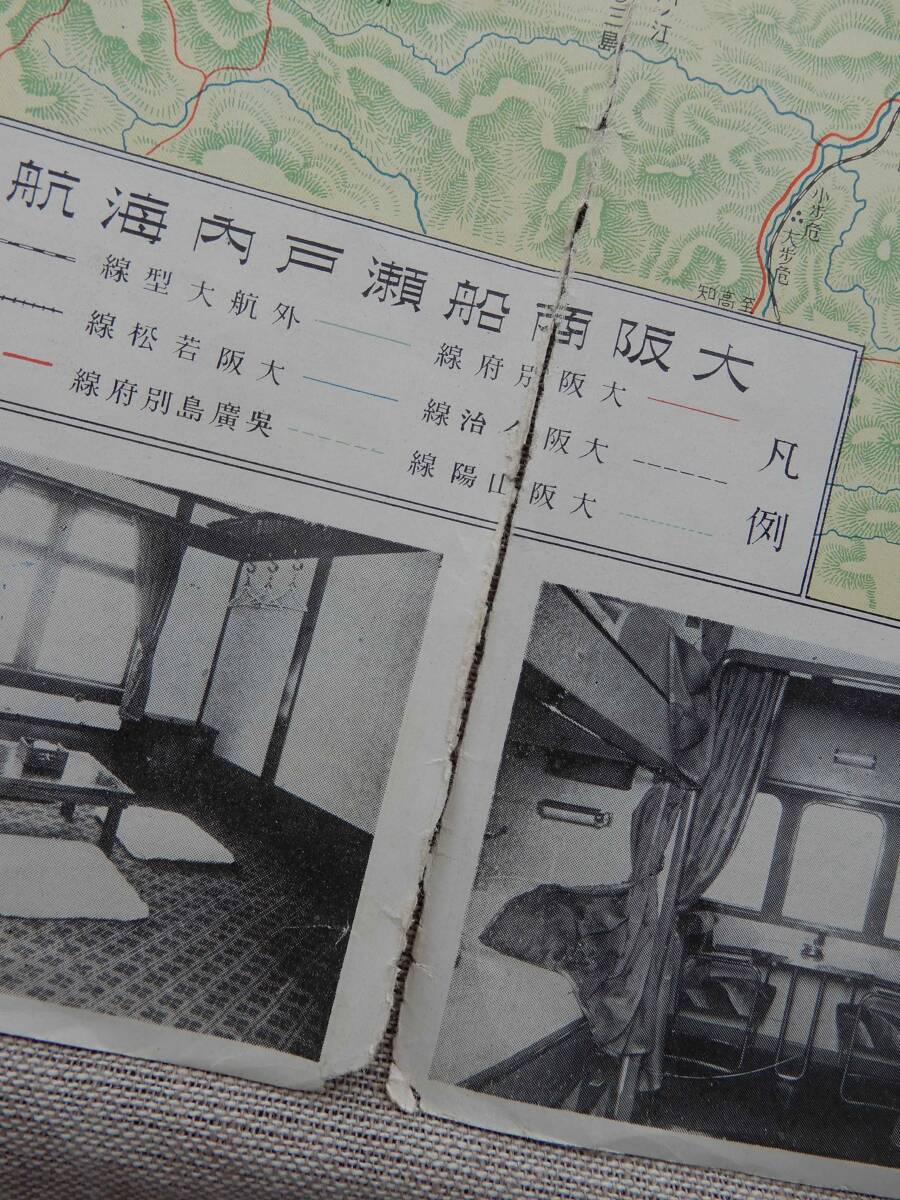 ノ江
三島
小歩危
大歩危
至高知
大阪商船瀬戸内海航
凡例
大阪別府線
大阪 治線
大阪山陽線
外航大型線
大阪若松線
呉廣島別府線